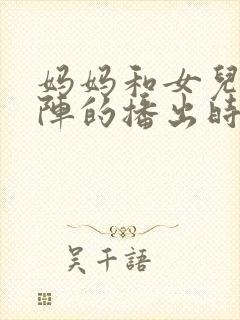 妈妈和女兒
陣的播出時
吴千語